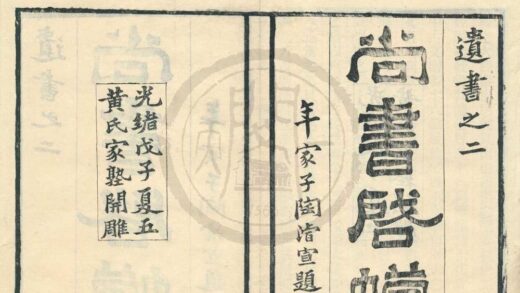 遺書之二
尚書啓
年家子陶濬宣題
光緒戊子夏五
黃氏家塾開雕